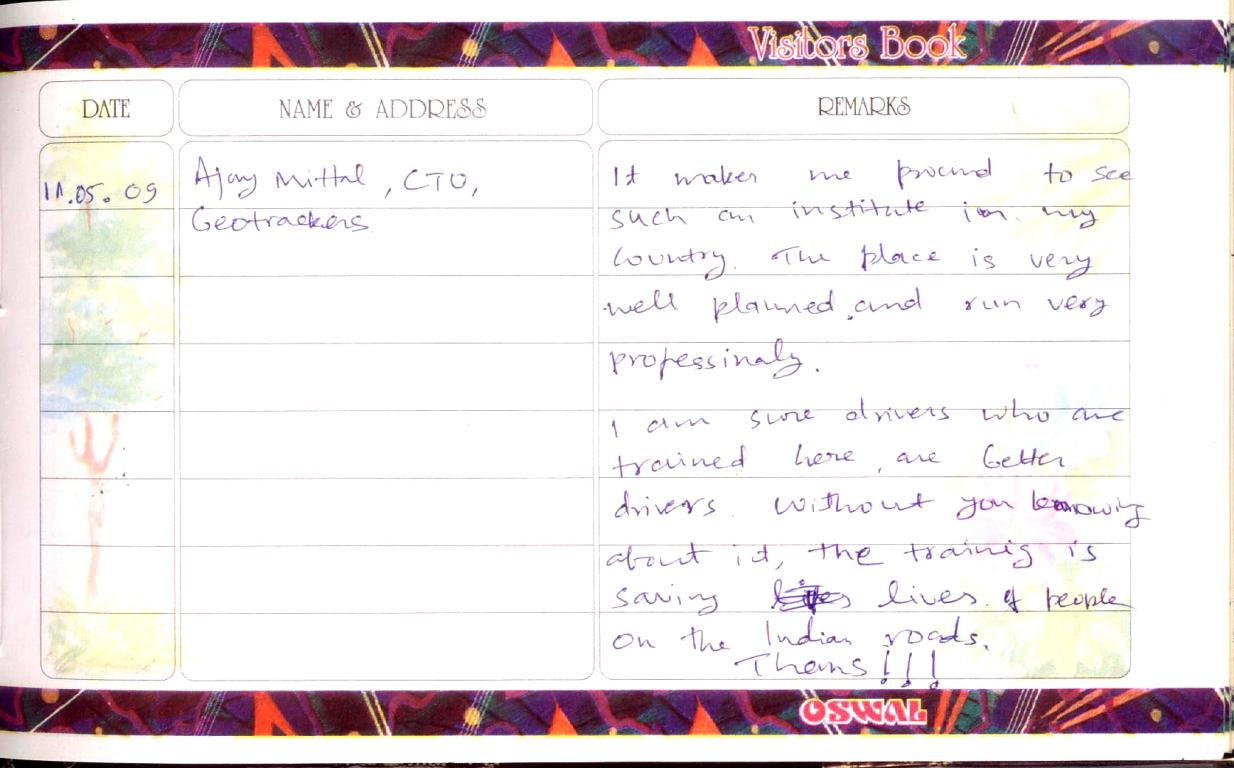 Visitors Book
DATE
NAME & ADDRESS
REMARKS
11.05.09
Ajay Mittal, CTO,
Geotrackers
It makes me proud to see
such an institute in my
Country. The place is very
well planned and run very
professinaly.
I am sure drivers who are
trained here, are better
drivers. Without you knowing
about it, the trainig is
saving lives of people
on the Indian roads.
Thanks!!!
OSWAL